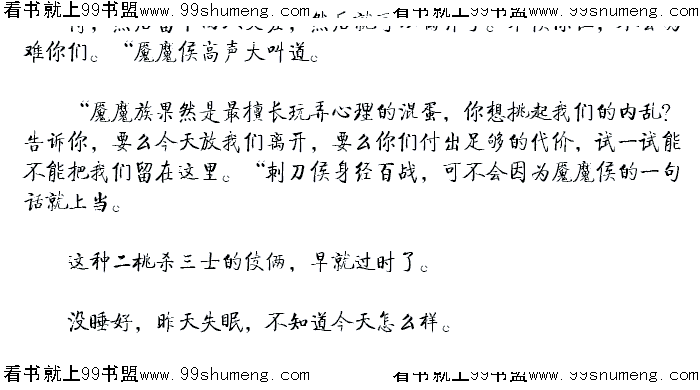 看书就上99书盟www.99shumeng.com 看书就上99书盟www.99shumeng.com
难你们。“魇魔侯高声大叫道。
“魇魔族果然是最擅长玩弄心理的混蛋，你想挑起我们的内乱？
告诉你，要么今天放我们离开，要么你们付出足够的代价，试一试能
不能把我们留在这里。“刺刀侯身经百战，可不会因为魇魔侯的一句
话就上当。
这种二桃杀三士的伎俩，早就过时了。
没睡好，昨天失眠，不知道今天怎么样。
看书就上99书盟www.99shumeng.com 看书就上99书盟www.99shumeng.com